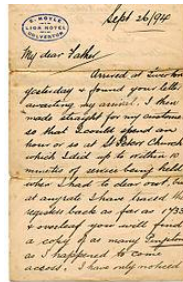 Sept 26/94
E. HOYLE
LION HOTEL
My dear Father
Arrived at Tiverton
yesterday & found your letter
awaiting my arrival. I then
made straight for my customers
so that I could spend an
hour or so at St Peters Church
which I did up to within 10
minutes of service being held
when I had to clear out, but
at any rate I have traced the
registers back as far as 1733
& overleaf you will find
a copy of as many
as I happened to come
across. I have only noticed